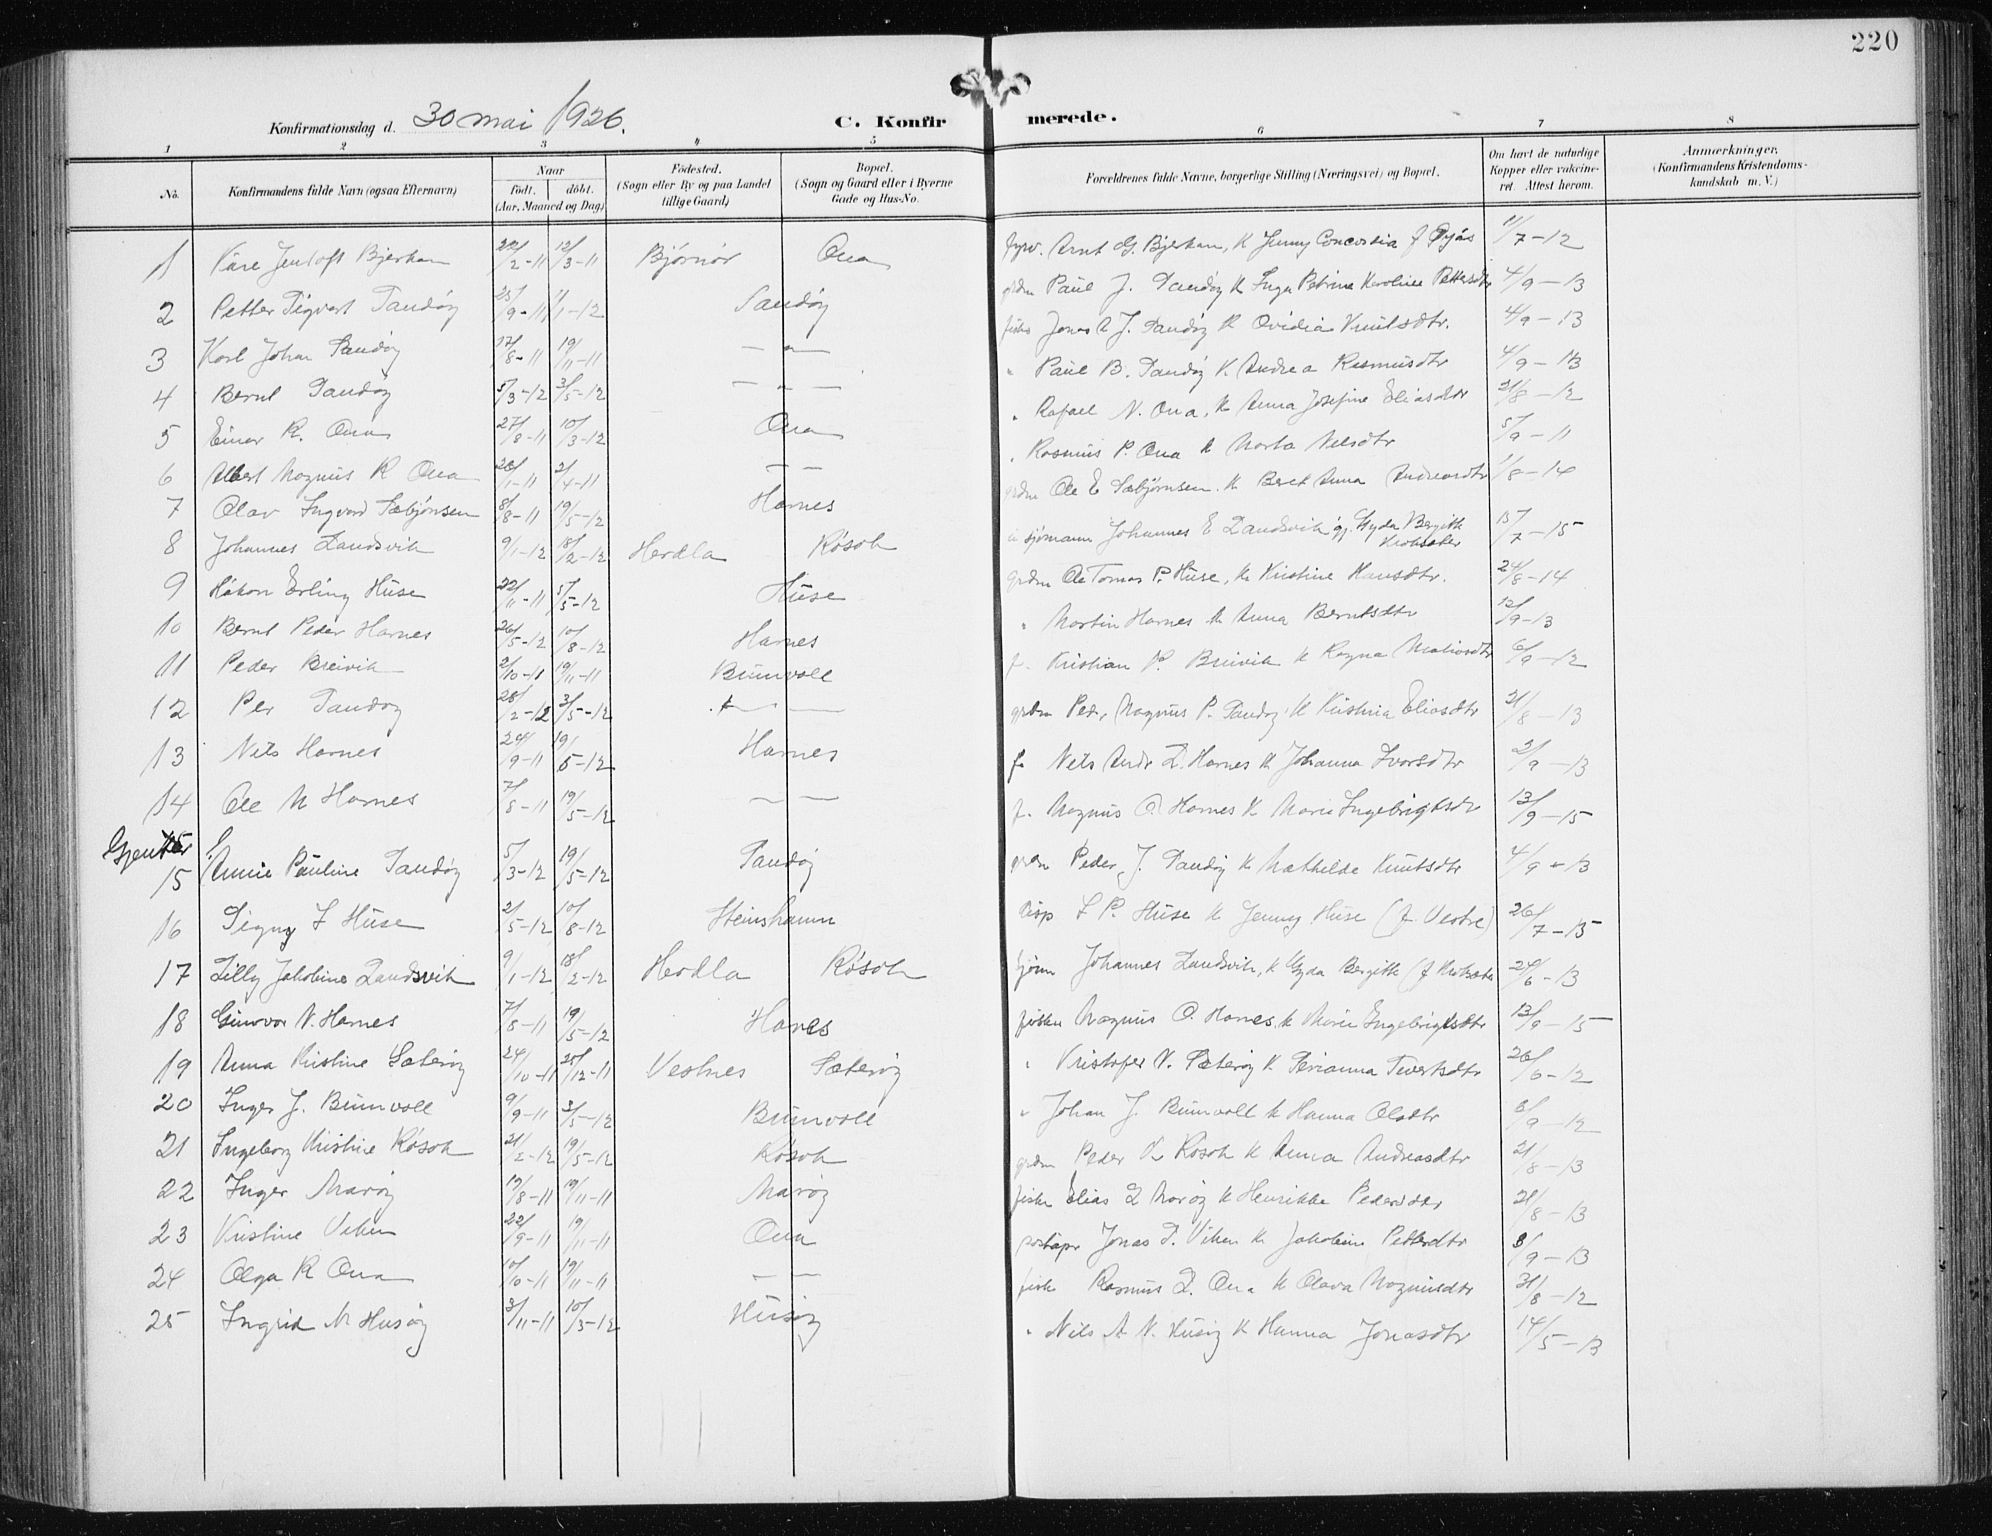 220
Konfirmationsdag d. 30 mai 1926. C. Konfirmerede.
1 2 3 4 5 6 7 8
No. Konfirmandens fulde Navn (ogsaa Efternavn) Naar født. døbt. (Aar, Maaned og Dag) Fødested. (Sogn eller By og paa Landet tillige Gaard) Bopæl. (Sogn og Gaard eller i Byerne Gade og Hus-No. Forældrenes fulde Navne, borgerlige Stilling (Næringsvei) og Bopæl. Om havt de naturlige Kopper eller vakcineret. Attest herom. Anmærkninger. (Konfirmandens Kristendomskundskab m. V.)
1 Kåre Jentoft Bjerkan 22/2-11 12/3-11 Bjørnør Ona fyrv. Arnt G. Bjerkan, K Jenny Concordia f 7-12
2 Petter Sigvart Sandøy 25/9-11 1-12 Sandøy grdm Paul J. Sandøy K Inga Petrine Karoline Pettersdtr 4/9-13
3 Karl Johan Sandøy 17/8-11 19/11-11 — " — Jonas J. Sandøy K Ovidia Knutsdtr. 4/9-13
4 Bernt Sandøy 5/3-12 3/5-12 — " — " Paul B. Sandøy K Andrea Rasmusdtr 4/9-13
5 Einar R. Ona 27/8-11 10/3-12 Ona " Rafael N. Ona, K Anna Josefine Eliasdtr 21/8-12
6 Albert Magnus R Ona 28/1-11 2/4-11 — — " Rasmus P. Ona K Marta Nilsdtr 5/9-11
7 Olav Ingvard Sæbjørnsen 8/8-11 19/5-12 Harnes grdm Ole E Sæbjørnsen. K Beret Anna Andreasdtr 1/8-14
8 Johannes Landsvik 9/1-12 18/2-12 Herdla Røsok sjømann Johannes E Landsvik Gyda Bergith 15/7-15
9 Håkon Erling Huse 22/11-11 5/5-12 Huse grdm Ole Tomas P. Huse, K Kristine Hansdtr. 24/8-14
10 Bernt Peder Harnes 26/5-12 10/8-12 Harnes " Martin Harnes K Anna Berntsdtr 12/9-13
11 Peder Breivik 2/10-11 19/11-11 Bunvoll f. Kristian P. Breivik K Ragna 6/9-12
12 Per Sandøy 28/2-12 3/5-12 — — grdm Peder Magnus P. Sandøy K Kristina Eliasdtr 21/8-13
13 Nils Harnes 24/9-11 19/5-12 Harnes f. Nils Andr L. Harnes K Johanna Ivarsdtr 2/9-13
14 Ole M Harnes 7/8-11 19/5-12 — — f. Magnus O. Harnes K Marie Ingebrigtsdtr 13/9-15
Gjenter
15 Annie Pauline Sandøy 5/3-12 19/5-12 Sandøy grdm Peder J. Sandøy K Mathilde Knutsdtr 4/9-13
16 Signy L Huse 2/5-12 10/8-12 Steinshamn disp L P. Huse K Jenny Huse (f. Vestre) 26/7-15
17 Lilly Jakobine Landsvik 9/1-12 18/2-12 Herdla Røsok sjøm Johannes Landsvik, K Gyda Bergith 24/6-13
18 Gunvor N. Harnes 7/8-11 19/5-12 Harnes fisker Magnus O. Harnes, K Marie Ingebrigtsdtr 13/9-15
19 Anna Kristine Sæterøy 24/10-11 25/12-11 Vestnes Sæterøy " Kristofer N. Sæterøy K Sivertsdtr 26/6-12
20 Inger J. Bunvoll 9/9-11 3/5-12 Bunvoll " Johan J. Bunvoll K Hanna Olsdtr 6/9-12
21 Ingeborg Kristine Røsok 21/2-12 19/5-12 Røsok grdm Peder L Røsok K Anna Andreasdtr 21/8-13
22 Inger Marøy 19/8-11 19/11-11 Marøy fisker Elias L Marøy K Henrikke Pedersdtr 21/8-13
23 Kristine Viken 22/9-11 19/11-11 Ona Jonas P. Viken K Jakobine Pettersdtr 8/9-13
24 Olga R Ona 10/10-11 19/11-11 — — fisker Rasmus L. Ona K Olava Magnusdtr 31/8-12
25 Ingrid N Husøy 3/11-11 10/3-12 Husøy " Nils A N. Husøy K Hanna Jonasdtr 14/5-13